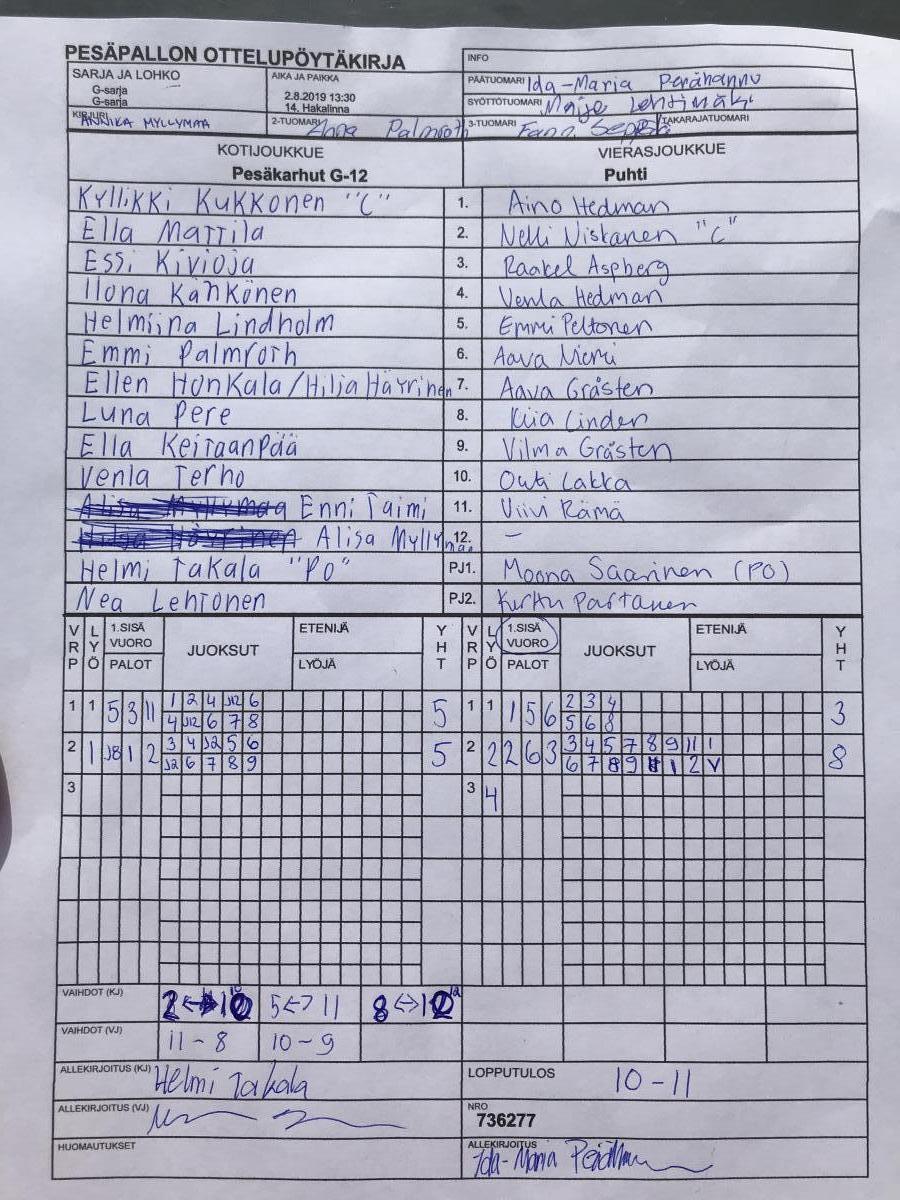 PESÄPALLON OTTELUPÖYTÄKIRJA
INFO
SARJA JA LOHKO
G-sarja
G-sarja
AIKA JA PAIKKA
2.8.2019 13:30
14. Hakalinna
PÄÄTUOMARI Ida-Maria Perähannu
SYÖTTÖTUOMARI Maije Lehtimäki
KIRJURI ANNIKA MYLLYMAA
2-TUOMARI Anna Palmroth
3-TUOMARI
TAKARAJATUOMARI
KOTIJOUKKUE
Pesäkarhut G-12
VIERASJOUKKUE
Puhti
Kyllikki Kukkonen "C" 1. Aino Hedman
Ella Mattila 2. Nelli Niskanen "C"
Essi Kivioja 3. Raakel Aspberg
Ilona Kähkönen 4. Venla Hedman
Helmiina Lindholm 5. Emmi Peltonen
Emmi Palmroth 6. Aava Niemi
Ellen Honkala/Hilja Häyrinen 7. Aava Gråsten
Luna Pere 8. Kiia Linden
Ella Keitaanpää 9. Vilma Gråsten
Venla Terho 10. Outi Lakka
Enni Taimi 11. Viivi Rämä
Alisa Myllymaa 12. –
Helmi Takala "PO" PJ1. Moona Saarinen (PO)
Nea Lehtonen PJ2. Kirttu Partanen
VRP LYÖ 1.SISÄ VUORO PALOT JUOKSUT ETENIJÄ LYÖJÄ YHT VRP LYÖ 1.SISÄ VUORO PALOT JUOKSUT ETENIJÄ LYÖJÄ YHT
1 1 5 3 11 1 2 4 J12 6 5 1 1 1 5 6 2 3 4 3
4 J12 6 7 8 5 6 8
2 1 J8 1 2 3 4 J2 5 6 5 2 2 2 6 3 3 4 5 7 8 9 11 1 8
J2 6 7 8 9 6 7 8 9 1 2 V
3 3 4
VAIHDOT (KJ) 5<->11
VAIHDOT (VJ) 11-8 10-9
ALLEKIRJOITUS (KJ) Helmi Takala
LOPPUTULOS 10-11
ALLEKIRJOITUS (VJ)
NRO
736277
HUOMAUTUKSET
ALLEKIRJOITUS
Ida-Maria